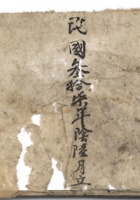 民國叁拾柒年陰陸月立